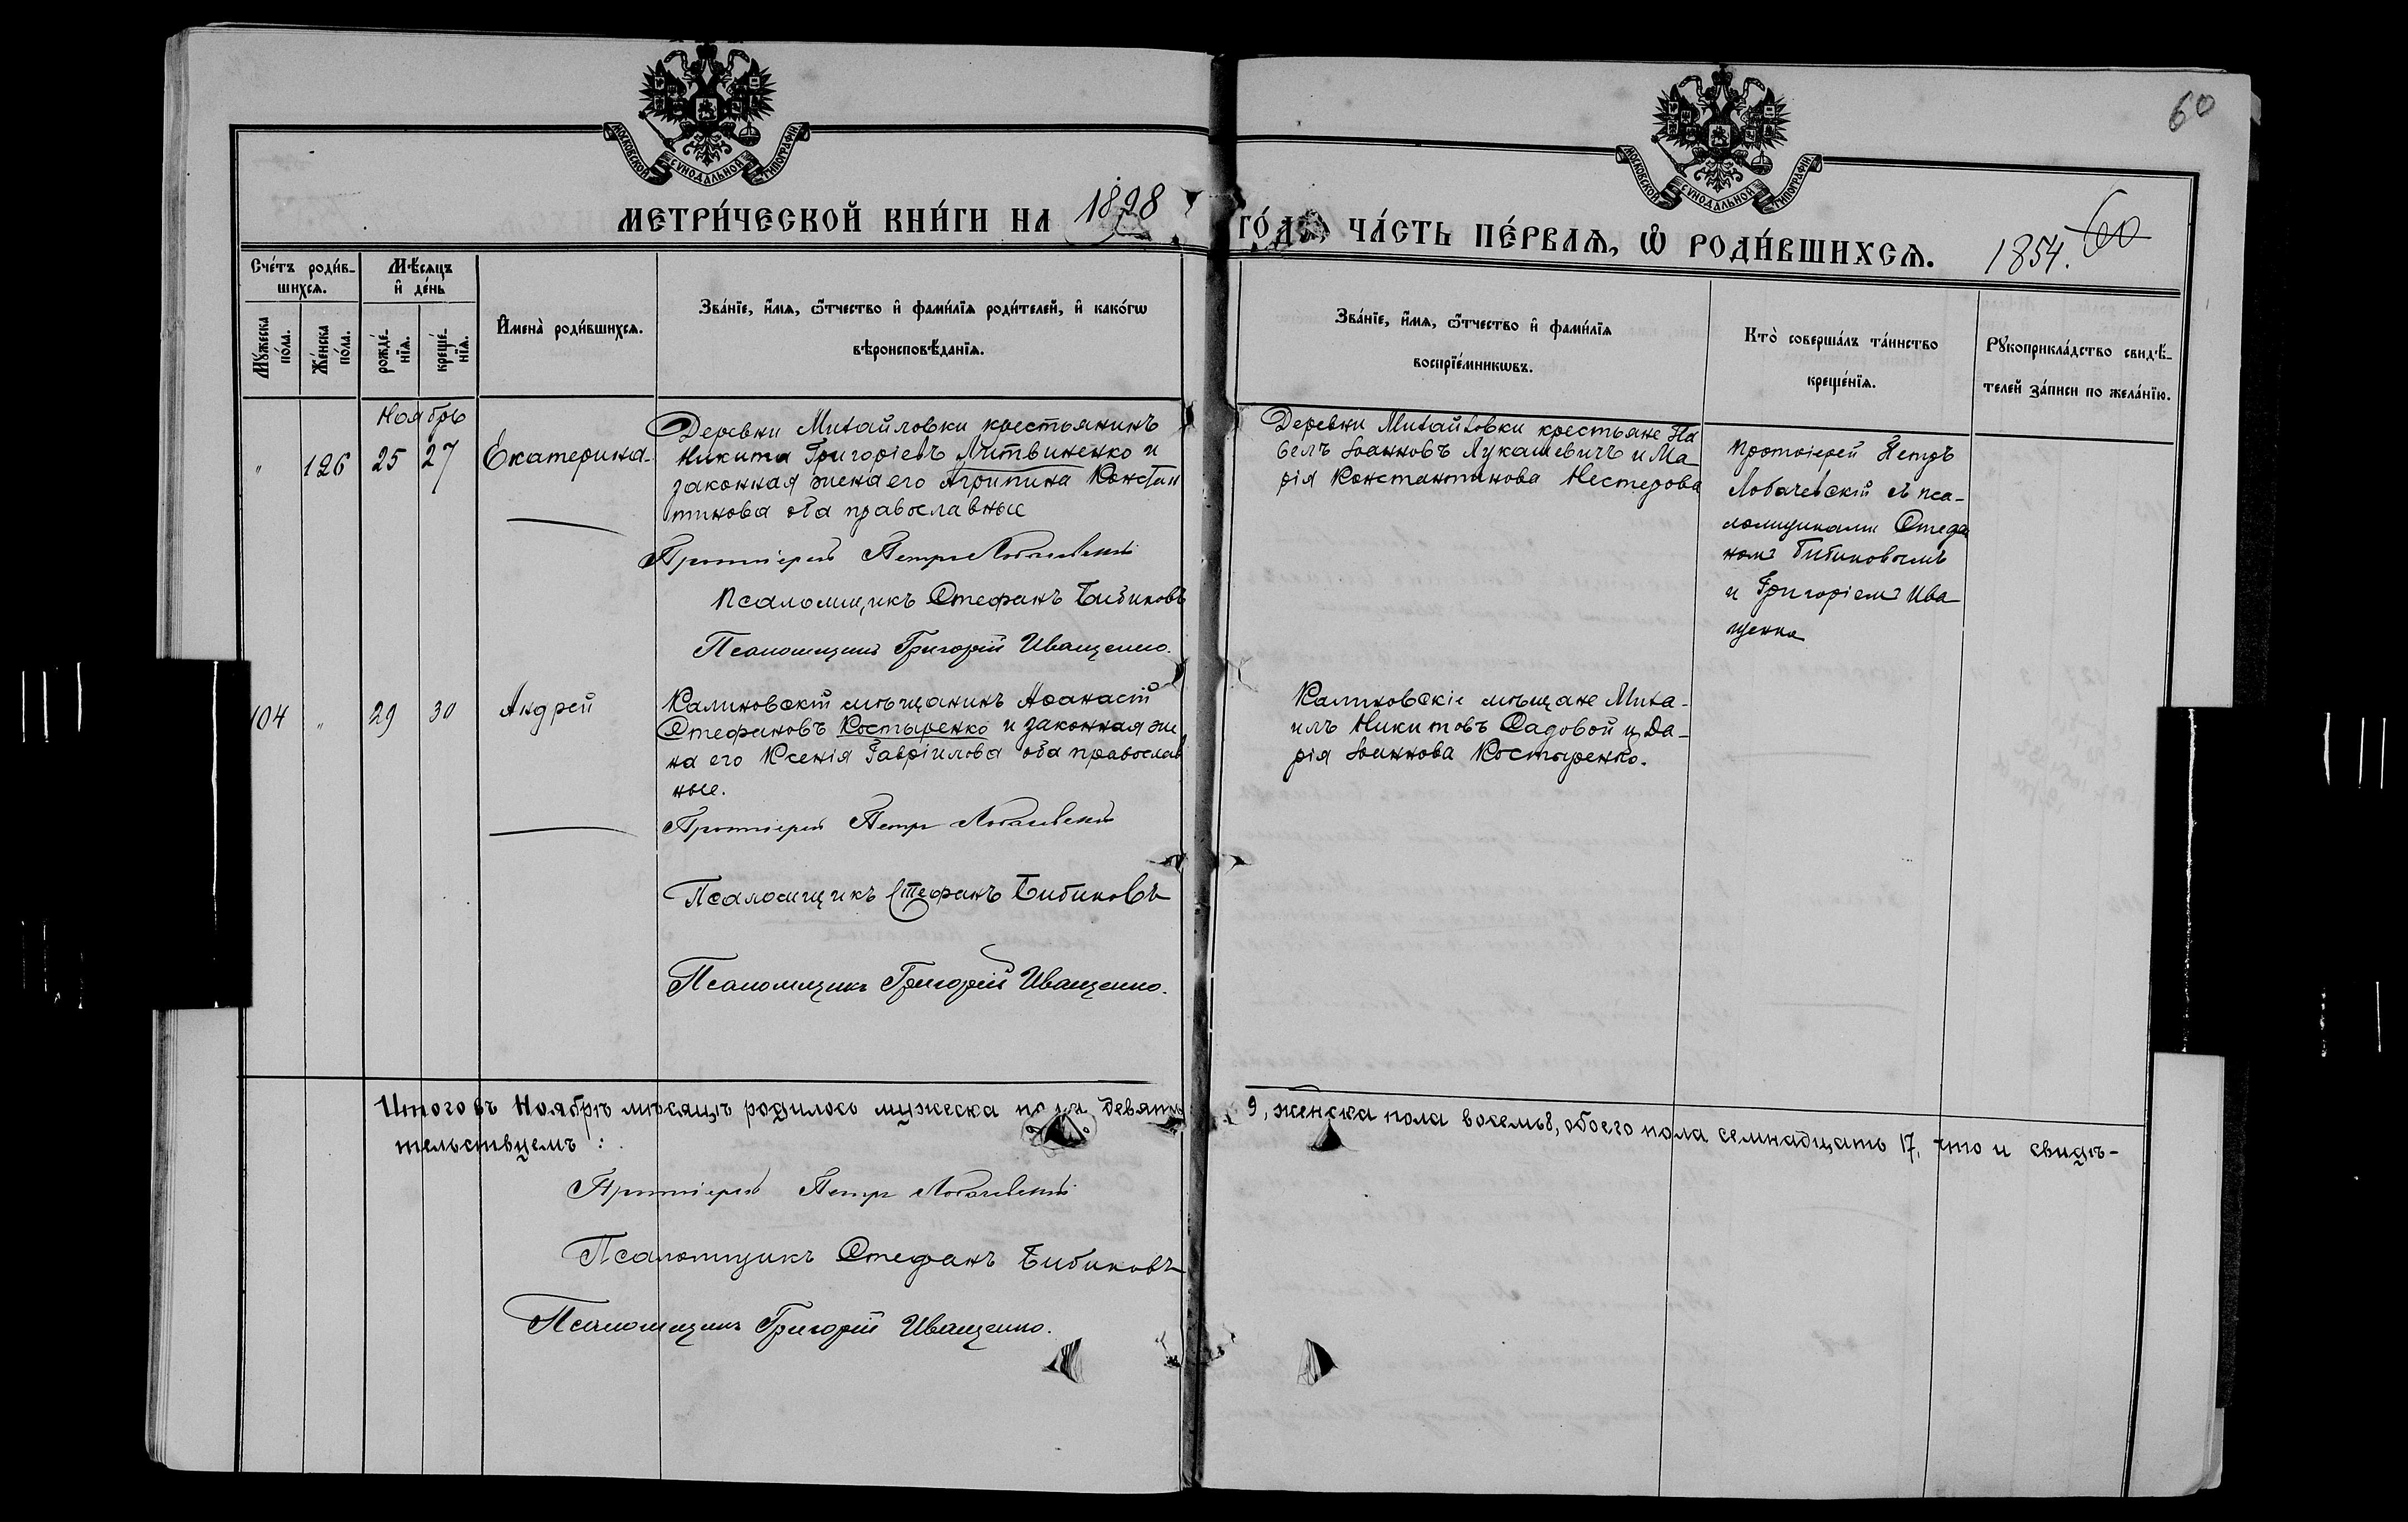 60
МОСКОВСКОЙ СѴНОДАЛЬНОЙ ТИПОГРАФІИ
МОСКОВСКОЙ СѴНОДАЛЬНОЙ ТИПОГРАФІИ
МЕТРИ́ЧЕСКОЙ КНИ́ГИ НА 1898
ГО́ДА ЧА́СТЬ ПЕ́РВАѦ, Ѡ҆ РОДИ́ВШИХСѦ.
1854. 60
Сче́тъ роди́в-
шихсѧ.
Мѣ́сѧцъ
и҆ де́нь
Мꙋ́жеска
по́ла.
Же́нска
по́ла.
рожде́-
нїѧ.
креще́-
нїѧ.
И҆мена̀ роди́вшихсѧ.
Зва́нїе, и҆́мѧ, ѻ҆́тчество и҆ фами́лїѧ роди́телей, и҆ како́гѡ
вѣроисповѣ́данїѧ.
Зва́нїе, и҆́мѧ, ѻ҆́тчество и҆ фами́лїѧ
воспрїе́мникѡвъ.
Кто̀ соверша́лъ та́инство
креще́нїѧ.
Рꙋкоприкла́дство свидѣ́-
телей за́писи по жела́нїю.
Ноябрь
" 126 25 27 Екатерина
Деревни Михайловки крестьянинъ
Никита Григоріевъ Литвиненко и
законная жена его Агрипина Констан
тинова оба православные
Протоіерей Петръ Лобачевскій
Псаломщикъ Стефанъ Бибиковъ
Псаломщикъ Григорій Иващенко.
Деревни Михайловки крестьяне Па
велъ Іоанновъ Лукашевичъ и Ма-
рія Константинова Нестерова
Протоіерей Петръ
Лобачевскій съ пса-
ломщиками Стефа
номъ Бибиковымъ
и Григоріемъ Ива
щенко
104 " 29 30 Андрей
Калиновскій мѣщанинъ Аѳанасій
Стефановъ Костыренко и законная же
на его Ксенія Гавріилова оба православ
ные.
Протоіерей Петръ Лобачевскій
Псаломщикъ Стефанъ Бибиковъ
Псаломщикъ Григорій Иващенко.
Калиновскіе мѣщане Миха-
илъ Никитовъ Садовой и Да-
рія Іоаннова Костыренко.
Итого въ Ноябрѣ мѣсяцѣ родилось мужеска пола девять 9, женска пола восемь 8, обоего пола семнадцать 17, что и свидѣ-
тельствуемъ:
Протоіерей Петръ Лобачевскій
Псаломщикъ Стефанъ Бибиковъ
Псаломщикъ Григорій Иващенко.